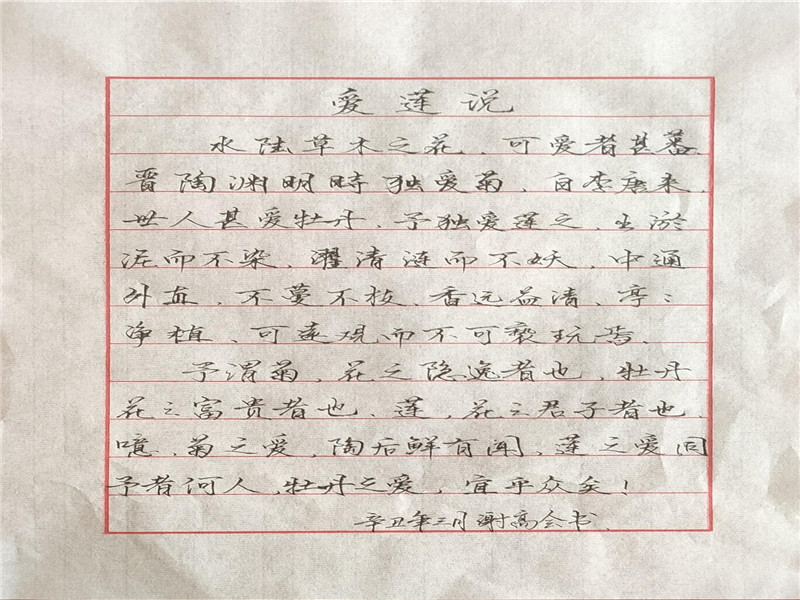 爱莲说
水陆草木之花，可爱者甚蕃.
晋陶渊明時独爱菊，自李唐来，
世人甚爱牡丹，予独爱莲之，出淤
泥而不染，濯清涟而不妖，中通
外直，不蔓不枝，香远益清，亭:
净植，可远观而不可亵玩焉.
予谓菊，花之隐逸者也，牡丹
花之富贵者也，莲，花之君子者也.
噫，菊之爱，陶后鲜有闻，莲之爱同
予者何人，牡丹之爱，宜乎众矣！
辛丑年三月谢高会书.